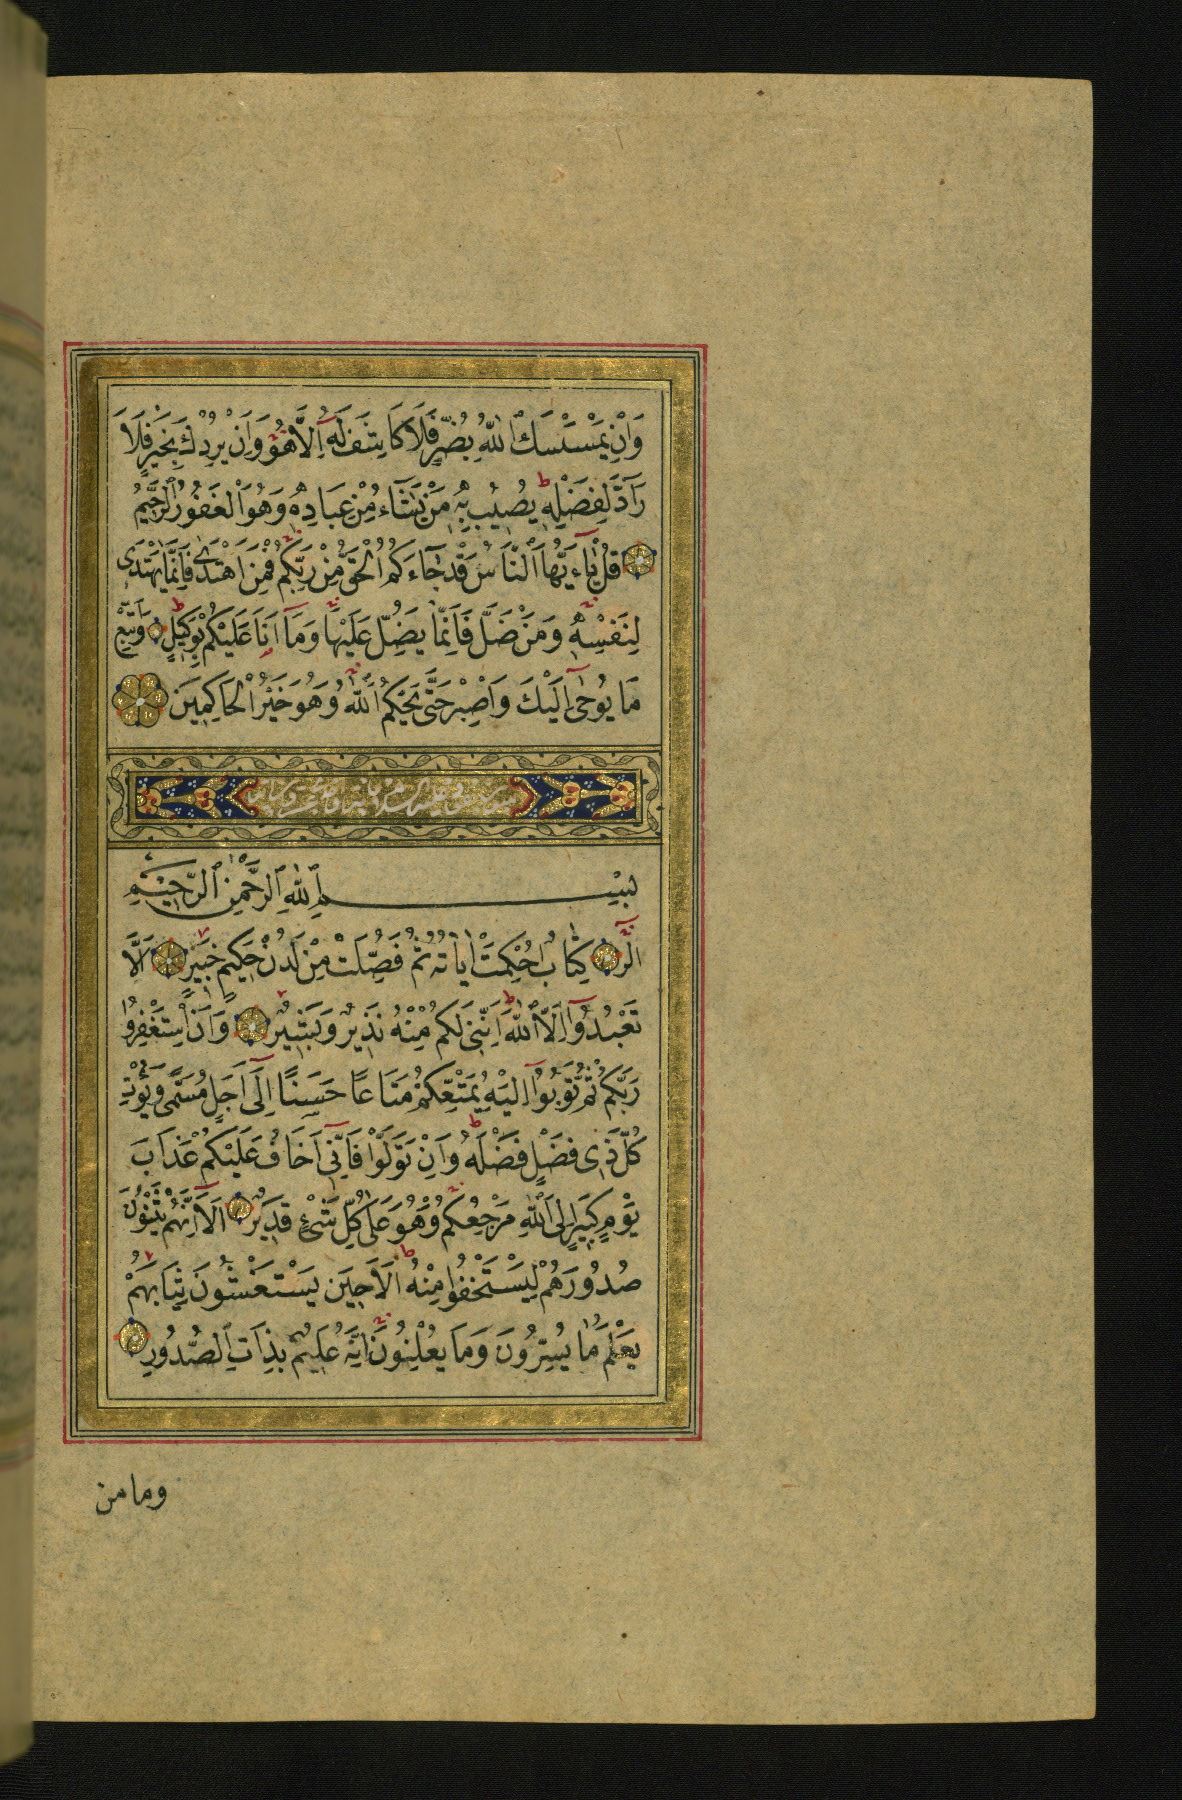 وَاِنْ يَمْسَسْكَ اللّٰهُ بِضُرٍّ فَلَا كَاشِفَ لَهُ اِلَّا هُوَ وَاِنْ يُرِدْكَ بِخَيْرٍ فَلَا
رَآدَّ لِفَضْلِهِ يُصِيبُ بِهِ مَنْ يَشَآءُ مِنْ عِبَادِهِ وَهُوَ الْغَفُورُ الرَّحِيمُ
قُلْ يَآءَيُّهَا النَّاسُ قَدْ جَآءَكُمُ الْحَقُّ مِنْ رَبِّكُمْ فَمَنِ اهْتَدٰى فَاِنَّمَا يَهْتَدٖى
لِنَفْسِهِ وَمَنْ ضَلَّ فَاِنَّمَا يَضِلُّ عَلَيْهَا وَمَآ اَنَا عَلَيْكُمْ بِوَكِيلٍ وَاتَّبِعْ
مَا يُوحٰىٓ اِلَيْكَ وَاصْبِرْ حَتّٰى يَحْكُمَ اللّٰهُ وَهُوَ خَيْرُ الْحَاكِمِينَ
بِسْمِ اللّٰهِ الرَّحْمٰنِ الرَّحِيمِ
الٓرٰ كِتَابٌ اُحْكِمَتْ اٰيَاتُهُ ثُمَّ فُصِّلَتْ مِنْ لَدُنْ حَكِيمٍ خَبِيرٍ اَلَّا
تَعْبُدُوٓا اِلَّا اللّٰهَ اِنَّنٖى لَكُمْ مِنْهُ نَذِيرٌ وَبَشِيرٌ وَاَنِ اسْتَغْفِرُوا
رَبَّكُمْ ثُمَّ تُوبُوٓا اِلَيْهِ يُمَتِّعْكُمْ مَتَاعًا حَسَنًا اِلٰٓى اَجَلٍ مُسَمًّى وَيُؤْتِ
كُلَّ ذٖى فَضْلٍ فَضْلَهُ وَاِنْ تَوَلَّوْا فَاِنّٖىٓ اَخَافُ عَلَيْكُمْ عَذَابَ
يَوْمٍ كَبِيرٍ اِلَى اللّٰهِ مَرْجِعُكُمْ وَهُوَ عَلٰى كُلِّ شَىْءٍ قَدِيرٌ اَلَآ اِنَّهُمْ يَثْنُونَ
صُدُورَهُمْ لِيَسْتَخْفُوا مِنْهُ اَلَا حِينَ يَسْتَغْشُونَ ثِيَابَهُمْ
يَعْلَمُ مَا يُسِرُّونَ وَمَا يُعْلِنُونَ اِنَّهُ عَلِيمٌ بِذَاتِ الصُّدُورِ
وما من